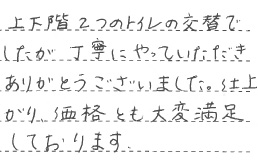 上下階2つのトイレの交替で
したが丁寧にやっていただき
ありがとうございました。仕上
がり、価格とも大変満足
しております.